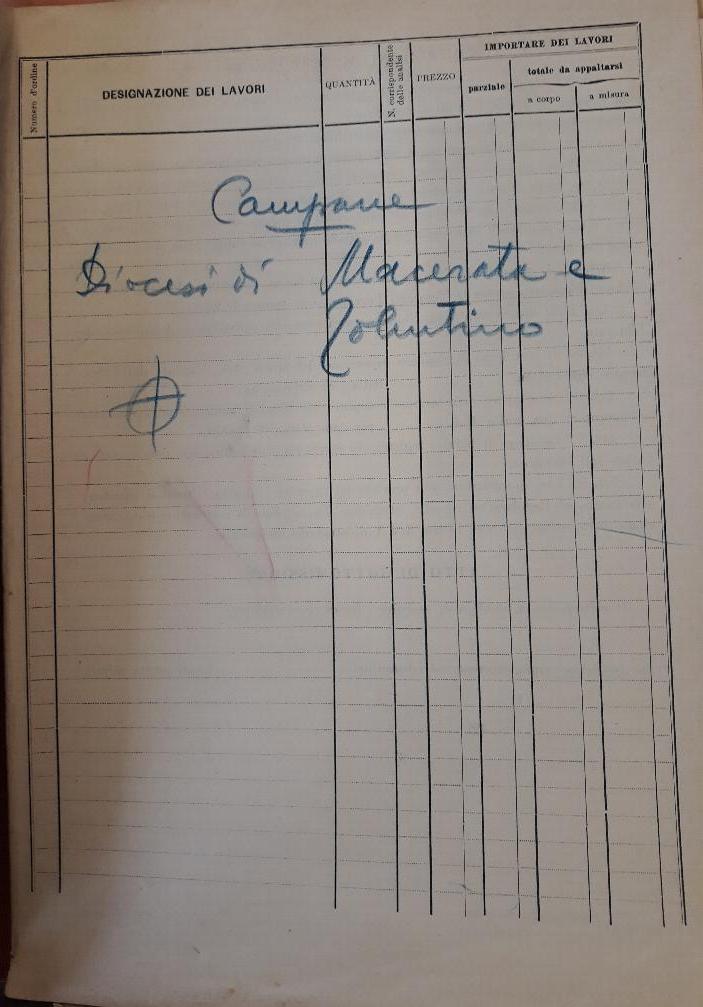 IMPORTARE DEI LAVORI
Numero d'ordine
DESIGNAZIONE DEI LAVORI
QUANTITÀ
N. corrispondente
delle analisi
PREZZO
parziale
totale da appaltarsi
a corpo
a misura
Campane
Diocesi di Macerata e
Tolentino